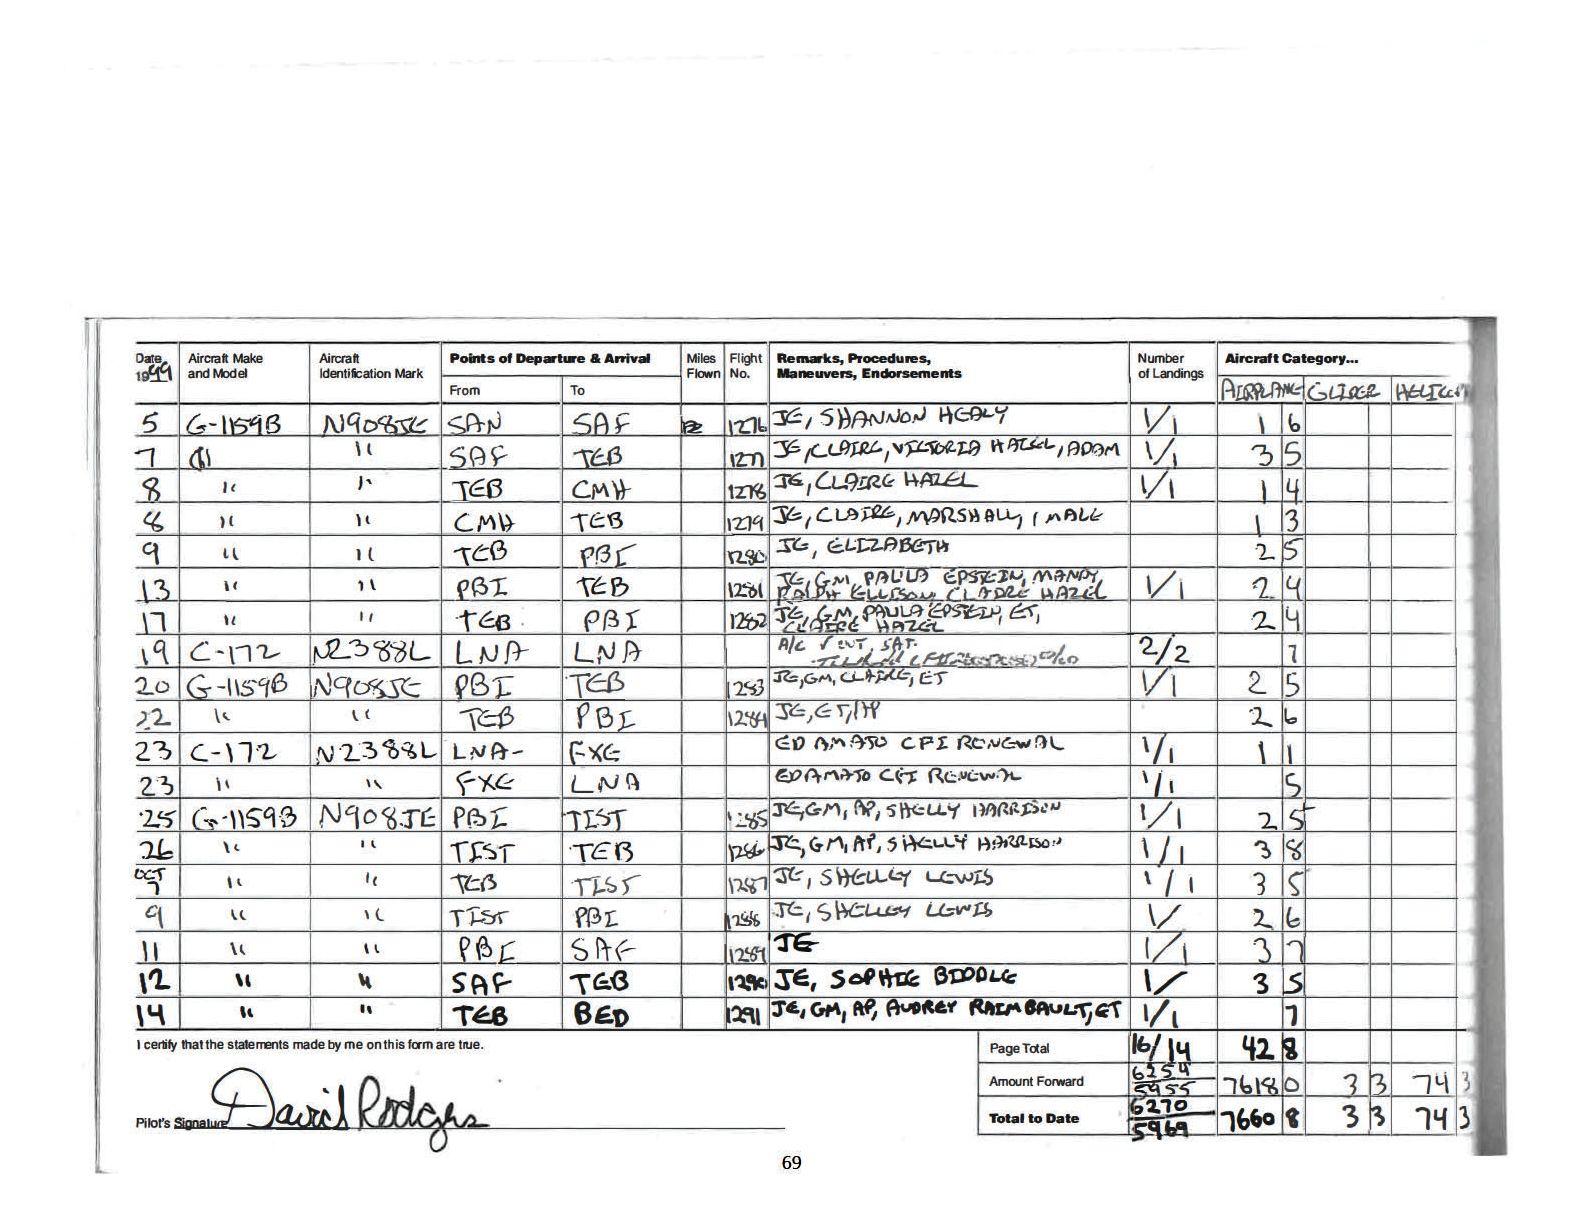 Date 1999 Aircraft Make and Model Aircraft Identification Mark Points of Departure & Arrival From To Miles Flown Flight No. Remarks, Procedures, Maneuvers, Endorsements Number of Landings Aircraft Category... AIRPLANE GLIDER
5 G-1159B N908JE SAN SAF 1276 JE, SHANNON HEALY 1/1 1 6
7 " SAF TEB 1277 JE, CLAIRE, VICTORIA HAZEL, ADAM 1/1 3 5
8 " " TEB CMH 1278 JE, CLAIRE HAZEL 1/1 1 4
8 " " CMH TEB 1279 JE, CLAIRE, MARSHALL, 1 MALE 1 3
9 " " TEB PBI 1280 JE, ELIZABETH 2 5
13 " " PBI TEB 1281 JE, GM, PAULA EPSTEIN, MANDY,
RALPH ELLISON, CLAIRE HAZEL 1/1 2 4
17 " " TEB PBI 1282 JE, GM, PAULA EPSTEIN, ET,
CLAIRE HAZEL 2 4
19 C-172 N2388L LNA LNA A/C 2/2 7
20 G-1159B N908JE PBI TEB 1283 JE, GM, CLAIRE, ET 1/1 2 5
22 " " TEB PBI 1284 JE, ET, 2 6
23 C-172 N2388L LNA- FXE ED AMATO CFI RENEWAL 1/1 1 1
23 " " FXE LNA ED AMATO CFI RENEWAL 1/1 5
25 G-1159B N908JE PBI TIST 1285 JE, GM, AP, SHELLY HARRISON 1/1 2 5
26 " " TIST TEB 1286 JE, GM, AP, SHELLY HARRISON 1/1 3 8
OCT
7 " " TEB TIST 1287 JE, SHELLEY LEWIS 1/1 3 5
9 " " TIST PBI 1288 JE, SHELLEY LEWIS 1/ 2 6
11 " " PBI SAF 1289 JE 1/1 3 7
12 " " SAF TEB 1290 JE, SOPHIE BIDDLE 1/ 3 5
14 " " TEB BED 1291 JE, GM, AP, AUDREY RAIMBAULT, ET 1/1 7
I certify that the statements made by me on this form are true.
Page Total 16/14 42 8
Amount Forward 6254/5955 7618 0 3 3 74 3
Pilot's Signature David Rodgers
Total to Date 6270/5969 7660 8 3 3 74 3
69